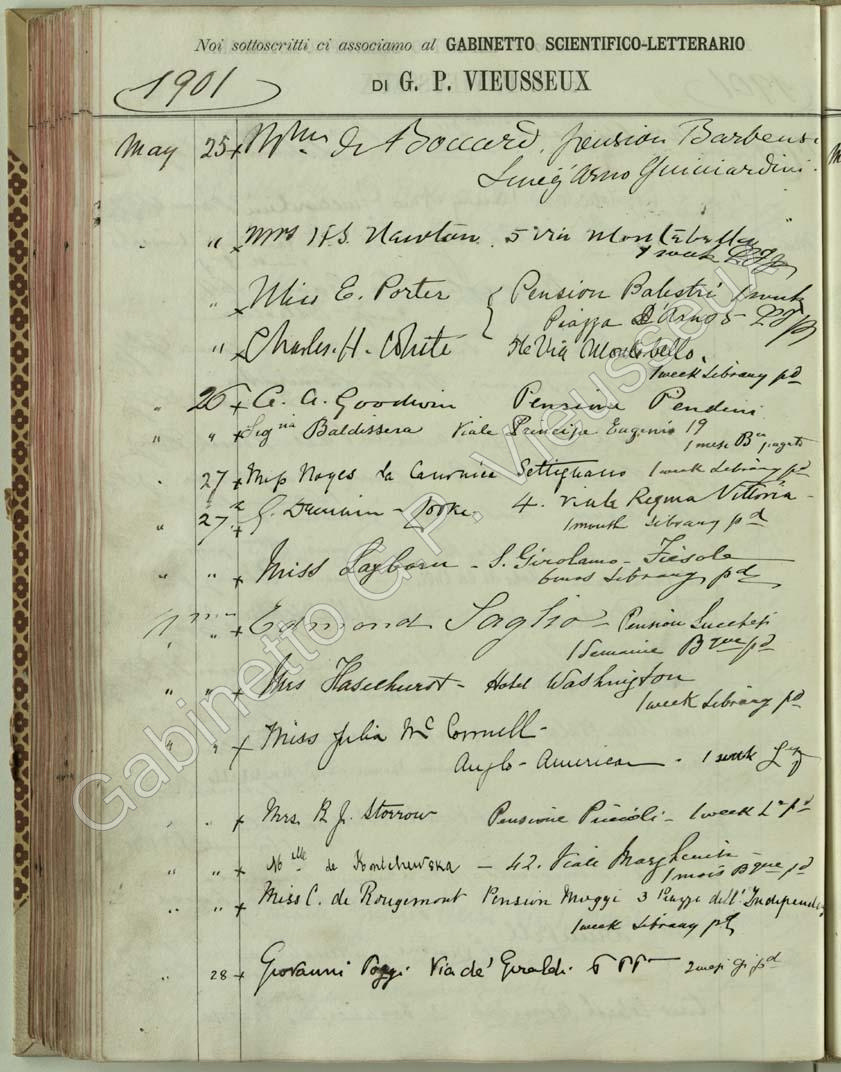 Noi sottoscritti ci associamo al GABINETTO SCIENTIFICO-LETTERARIO
1901
DI G. P. VIEUSSEUX
May 25 x de Boccard, pension Barbensi
Lung'Arno Guicciardini.
" x Mrs H.S. Newton. 5 via Montebello
1 week
" x Miss E. Porter { Pension Balestri 1 week
Piazza D'Arno 5
" x Charles. H. White Via Montebello.
1 week Library pd
" 26 x A. Goodwin Pensione Pendini
" " x Signa Baldissera Viale Principe Eugenio 19
1 mese pagato
" 27 x Miss Noyes La Canonica Settignano 1 week Library pd
" 27 x G. 4. Viale Regina Vittoria
1 month Library pd
" " x Miss - S. Girolamo - Fiesole
Library pd
" " x Edmond Saglio - Pension Lucchesi
1 Semaine Bque pd
" " x Mrs Haselhurst - Hotel Washington
1 week Library pd
" " x Miss Julia McConnell -
Anglo-American - 1 week
" " x Mrs. R. J. Storrow Pensione Piccioli - 1 week Ly pd
" " x Melle de - 42. Viale Margherita -
1 mois Bque pd
" " x Miss C. de Rougemont Pension Muggi 3 Piazza dell'Independenza
1 week Library pd
" 28 x Giovanni Poggi Via de' Giraldi 2 mesi pd
Gabinetto G.P. Vieusseux